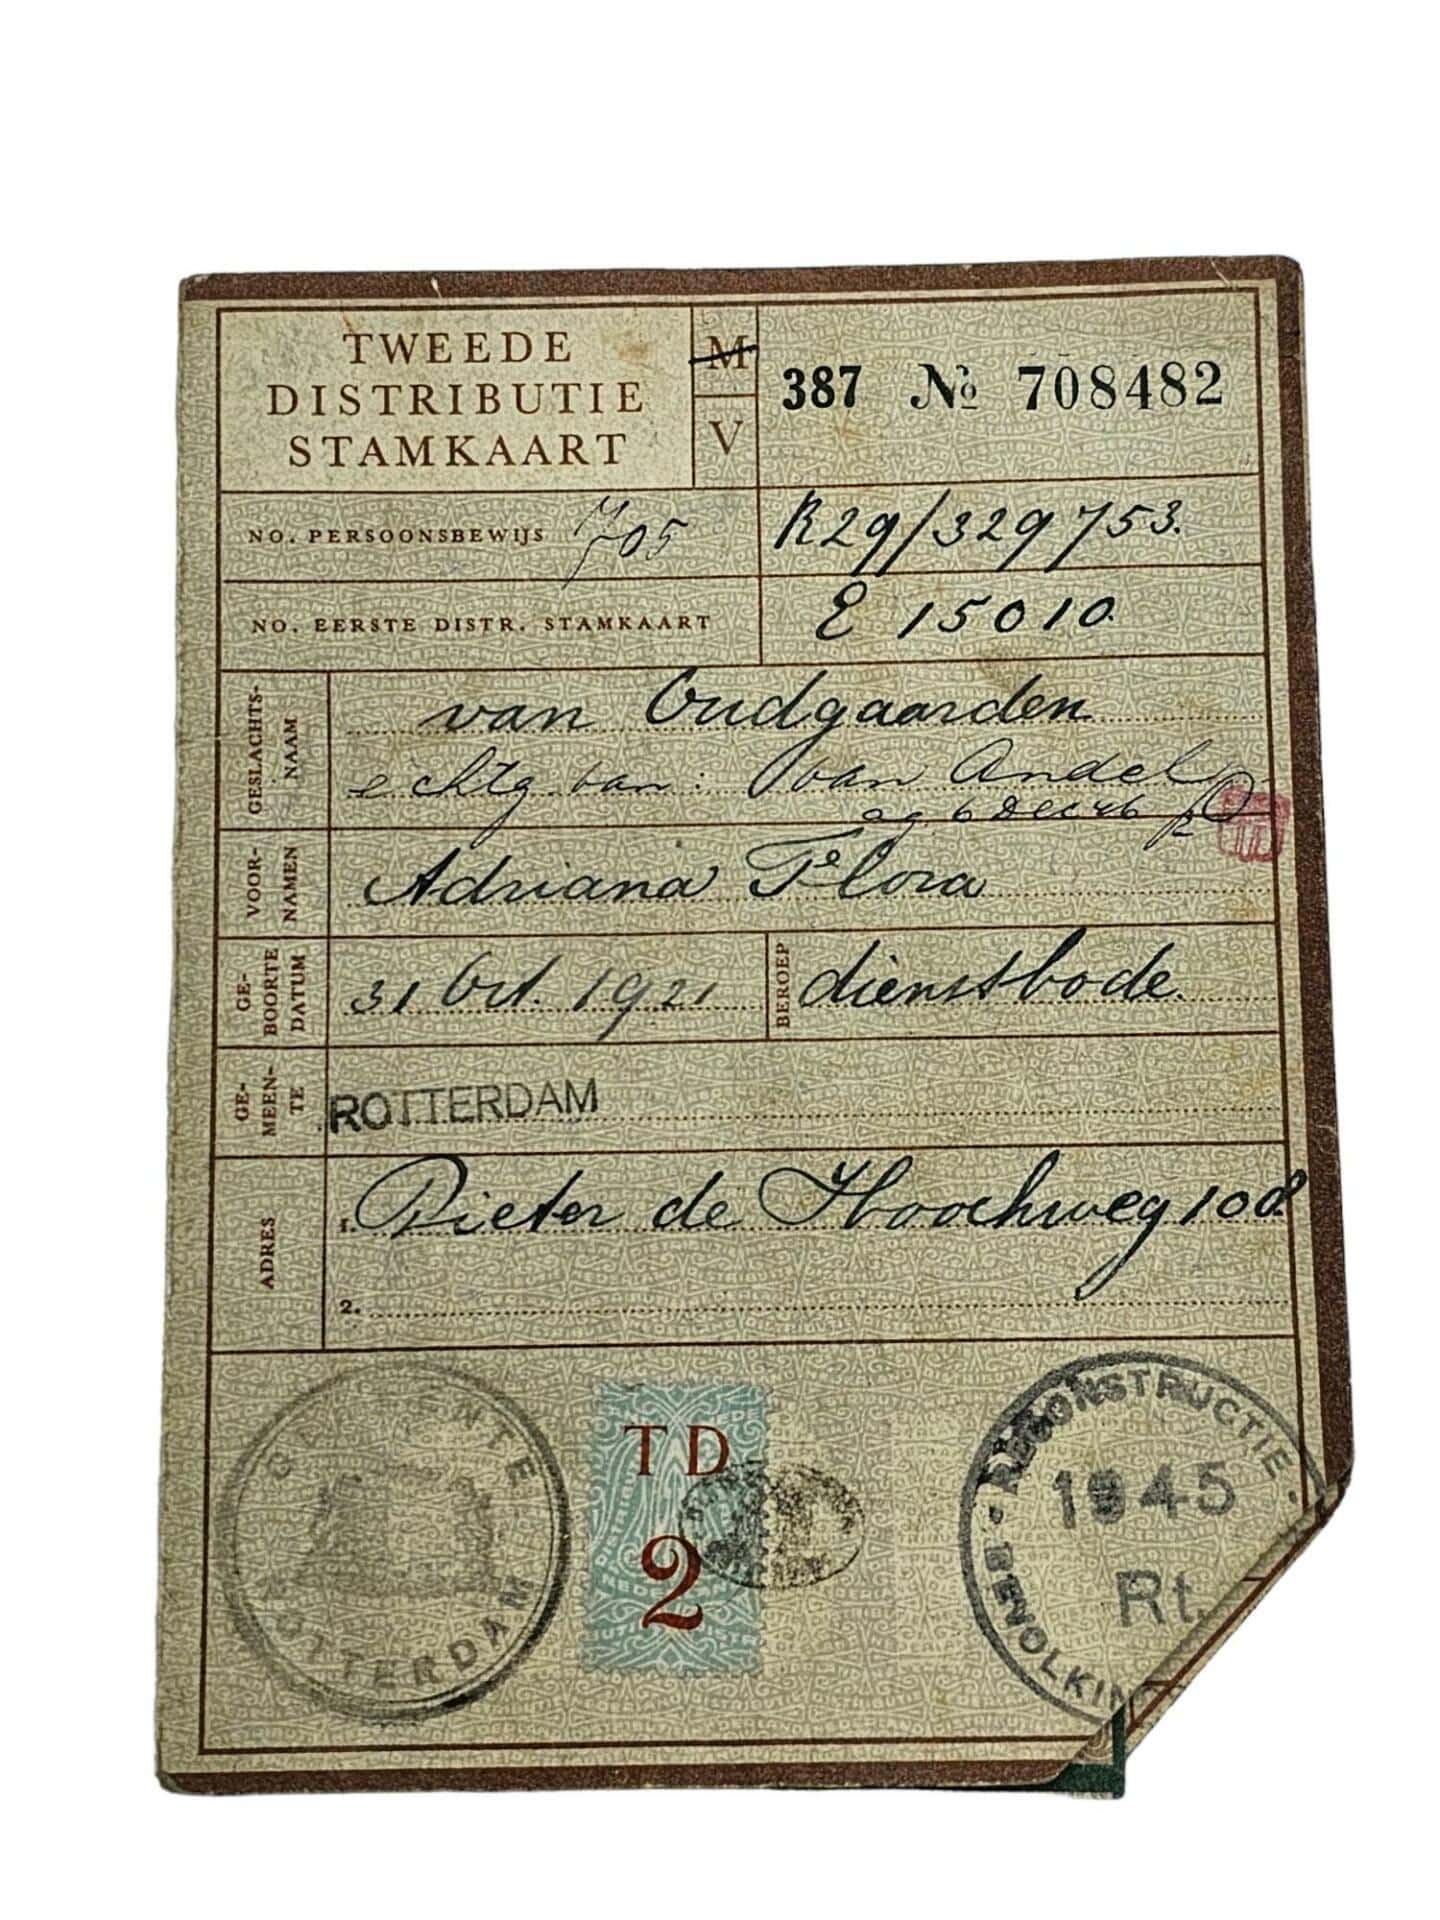 TWEEDE
DISTRIBUTIE
STAMKAART
M
V
387 № 708482
NO. PERSOONSBEWIJS 705 R29/329753.
NO. EERSTE DISTR. STAMKAART E 15010.
GESLACHTS-
NAAM
van Oudgaarden
echtg van: van Andel
ag 6 Dec 46
VOOR-
NAMEN
Adriana Flora
GE-
BOORTE
DATUM
31 Oct. 1921
BEROEP
dienstbode.
GE-
MEEN-
TE
ROTTERDAM
ADRES
1. Pieter de Hoochweg 108
2.
GEMEENTE ROTTERDAM
TD
2
RECONSTRUCTIE
1945
Rt.
BEVOLKIN